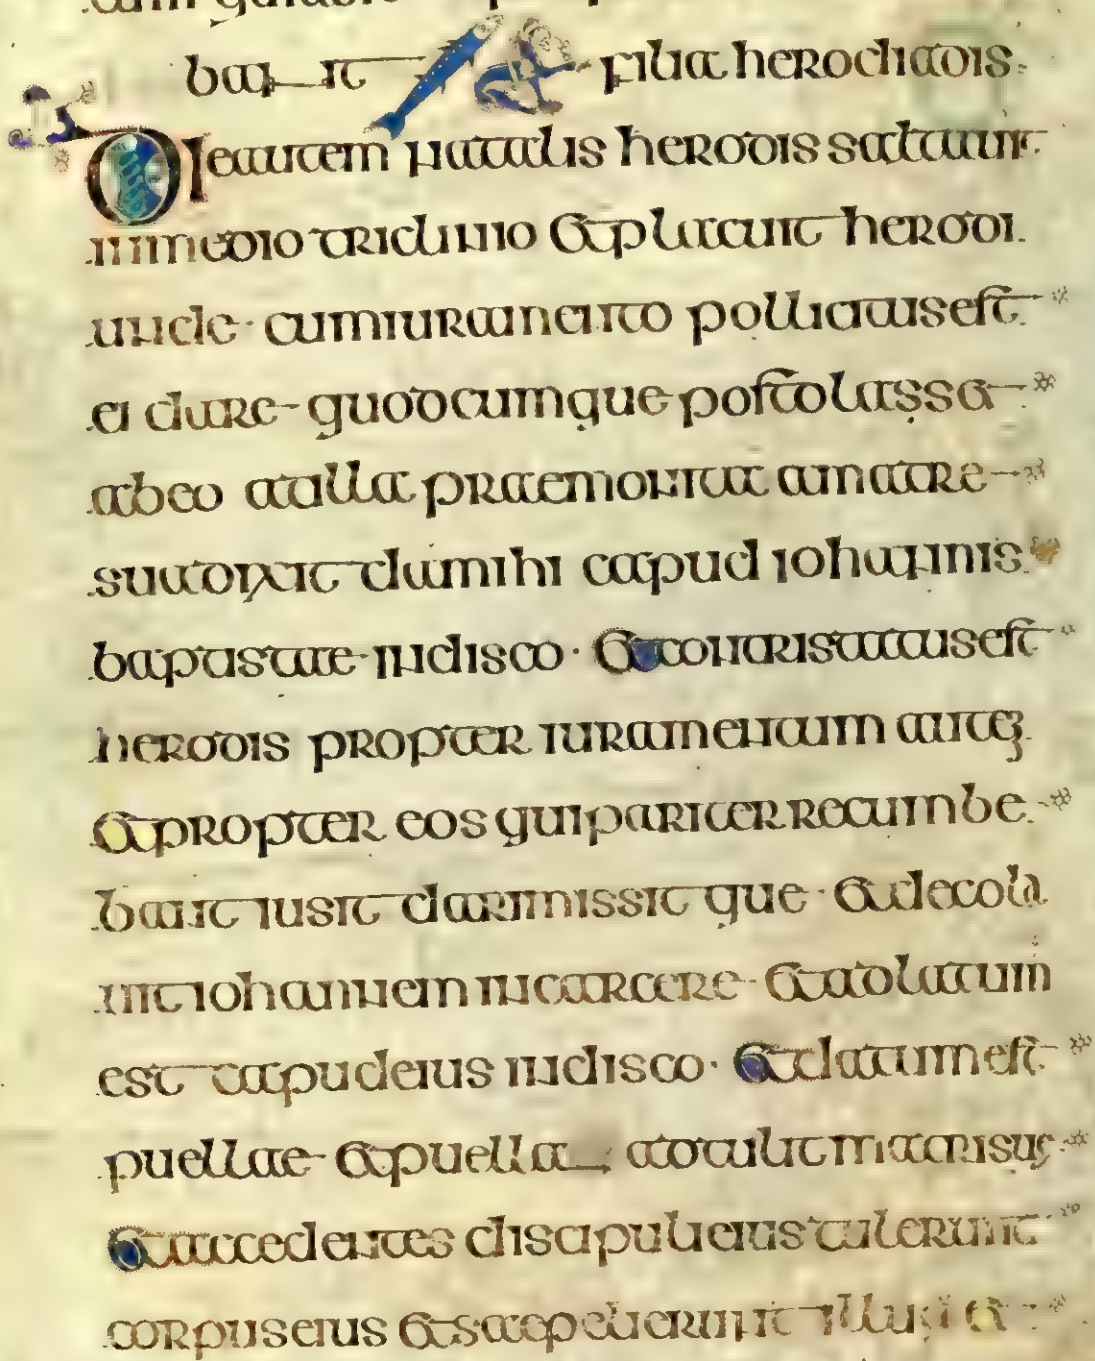 bant filia herodiadis
Die autem natalis herodis saltauit
in medio triclinio et placuit herodi
unde cum iuramento pollicitus est
ei dare quodcumque postolasset
ab eo at illa praemonita a matre
sua dixit da mihi capud iohannis
baptistae in disco et contristatus est
herodis propter iuramentum autem
et propter eos qui pariter recumbe
bant iusit dari missitque et decola
uit iohannem in carcere et adlatum
est caput eius in disco et datum est
puellae et puella adtulit matri sue
et accedentes discipuli eius tulerunt
corpus eius et sepelierunt illud et